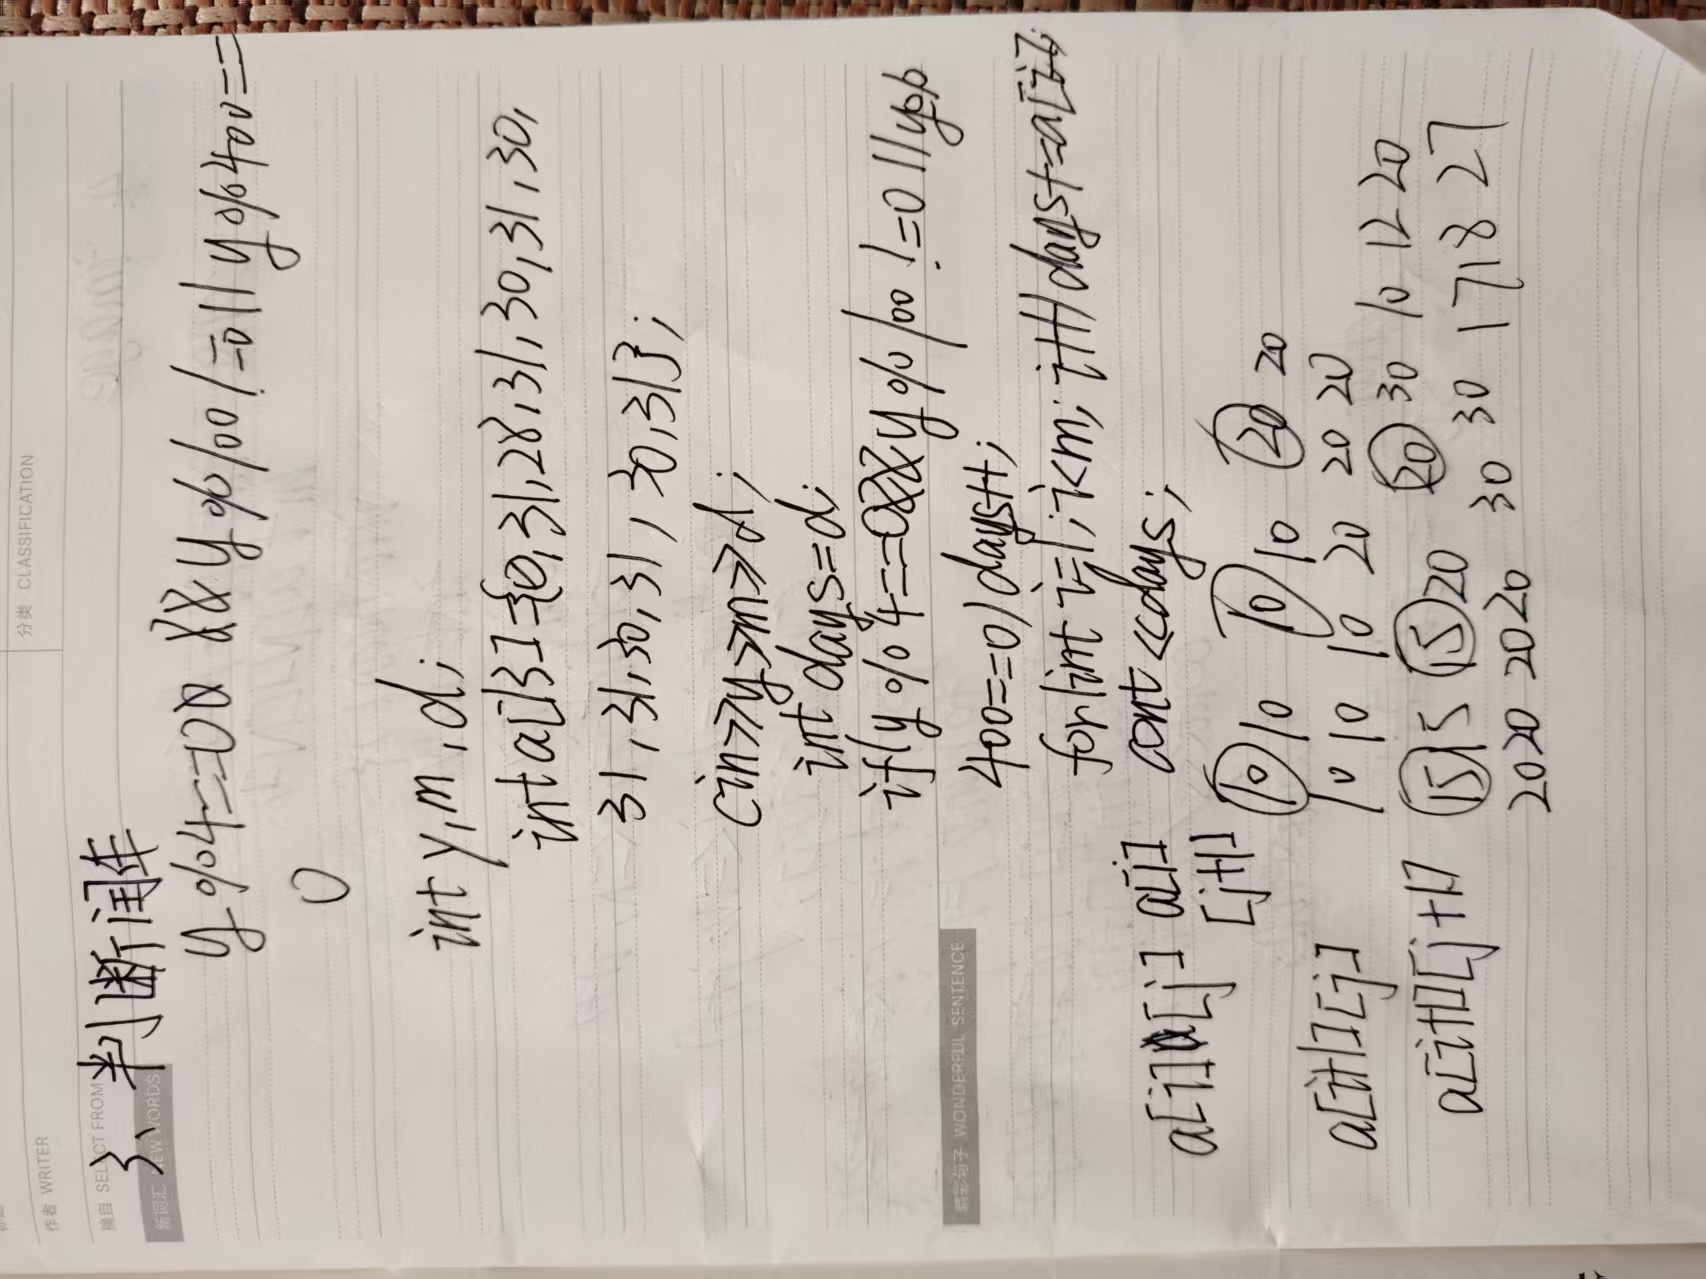 分类 CLASSIFICATION
作者 WRITER
摘自 SELECT FROM
新词汇 NEW WORDS
3、判断闰年
y%4==0 && y%100!=0||y%400==
0
int y,m,d;
int a[13]={0,31,28,31,30,31,30,
31,31,30,31,30,31};
cin>>y>>m>>d;
int days=d;
if(y%4==0&&y%100!=0||y%
400==0)days++;
for(int i=1;i<m;i++)days+=a[i];
cont<<days;
精彩句子 WONDERFUL SENTENCE
a[i][j] a[i]
[j+1]
10 10 10 10 20 20
a[i+1][j]
10 10 10 20 20 20
15 15 15 20 20 30 10 12 20
a[i+1][j+1]
20 20 20 20 30 30 17 18 27